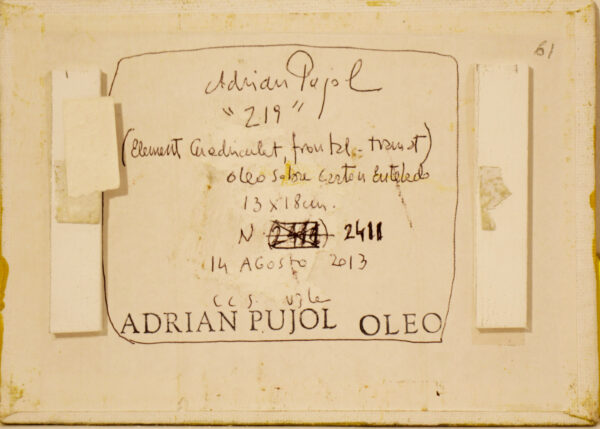 61
Adrian Pujol
"219"
(Element Cuadriculat, frontal - tramat)
oleo sobre carton Entelado
13 x 18 cm.
N 2411
14 AGOSTO 2013
CCS. Vzla
ADRIAN PUJOL OLEO